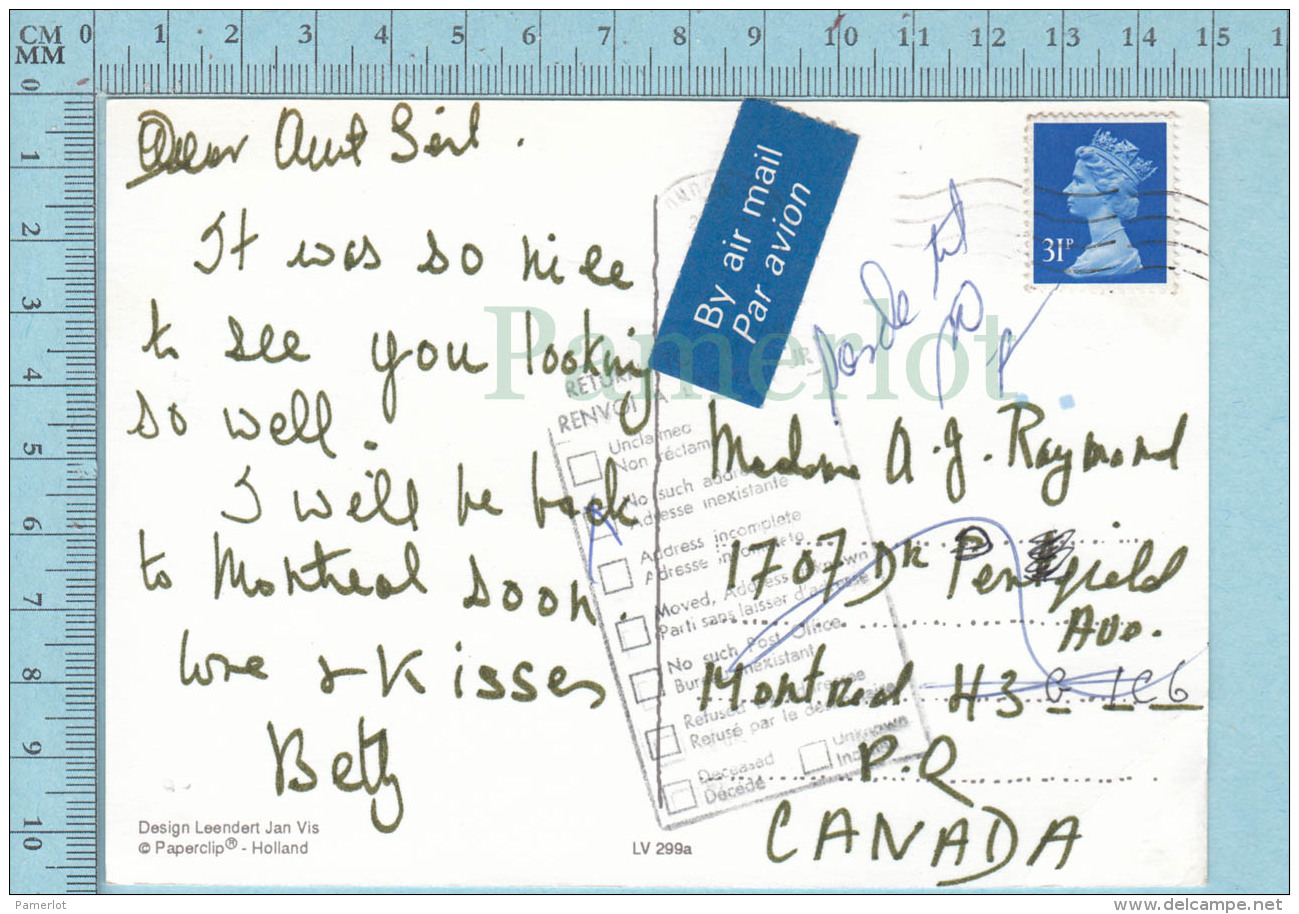 CM 0 1 2 3 4 5 6 7 8 9 10 11 12 13 14 15
MM
0 1 2 3 4 5 6 7 8 9 10
Dear Aunt
It was so nice
to see you looking
so well.
I will be back
to Montreal soon.
love & Kisses
Betty
Design Leendert Jan Vis
© Paperclip® - Holland
LV 299a
By air mail
Par avion
31P
RETURN
RENVOI À
Unclaimed
Non réclamé
No such address
Adresse inexistante
Address incomplete
Adresse incomplète
Moved, Address unknown
Parti sans laisser d'adresse
No such Post Office
Bureau inexistant
Refused by addressee
Refusé par le destinataire
Deceased
Décédé
Unknown
Inconnu
Madame A. J. Raymond
1707 Dr Penfield
Ave.
Montreal H3G 1C6
P.Q
CANADA
Pamerlot
Pamerlot
delcampe.net